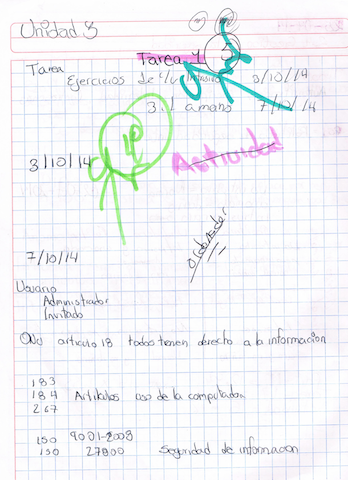 Unidad 3
Tarea 1
3
Tarea
Ejercicios de 3/10/14
3.1 a mano 7/10/14
10
3/10/14 Actividad
7/10/14
Usuario
Administrador
Invitado
articulo 18 todos tienen derecto a la informacion
183
184 Artikulos uso de la computadora
267
iso 9001-2008
iso 27800 Seguridad de informacion